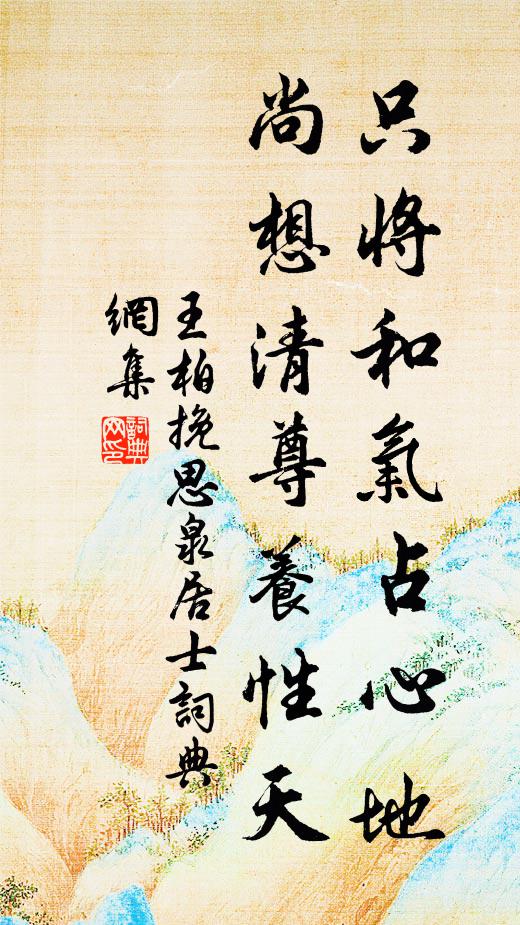 只將和氣占心地
尚想清尊養性天
王柏挽思泉居士詞典
網集
詞典
網印